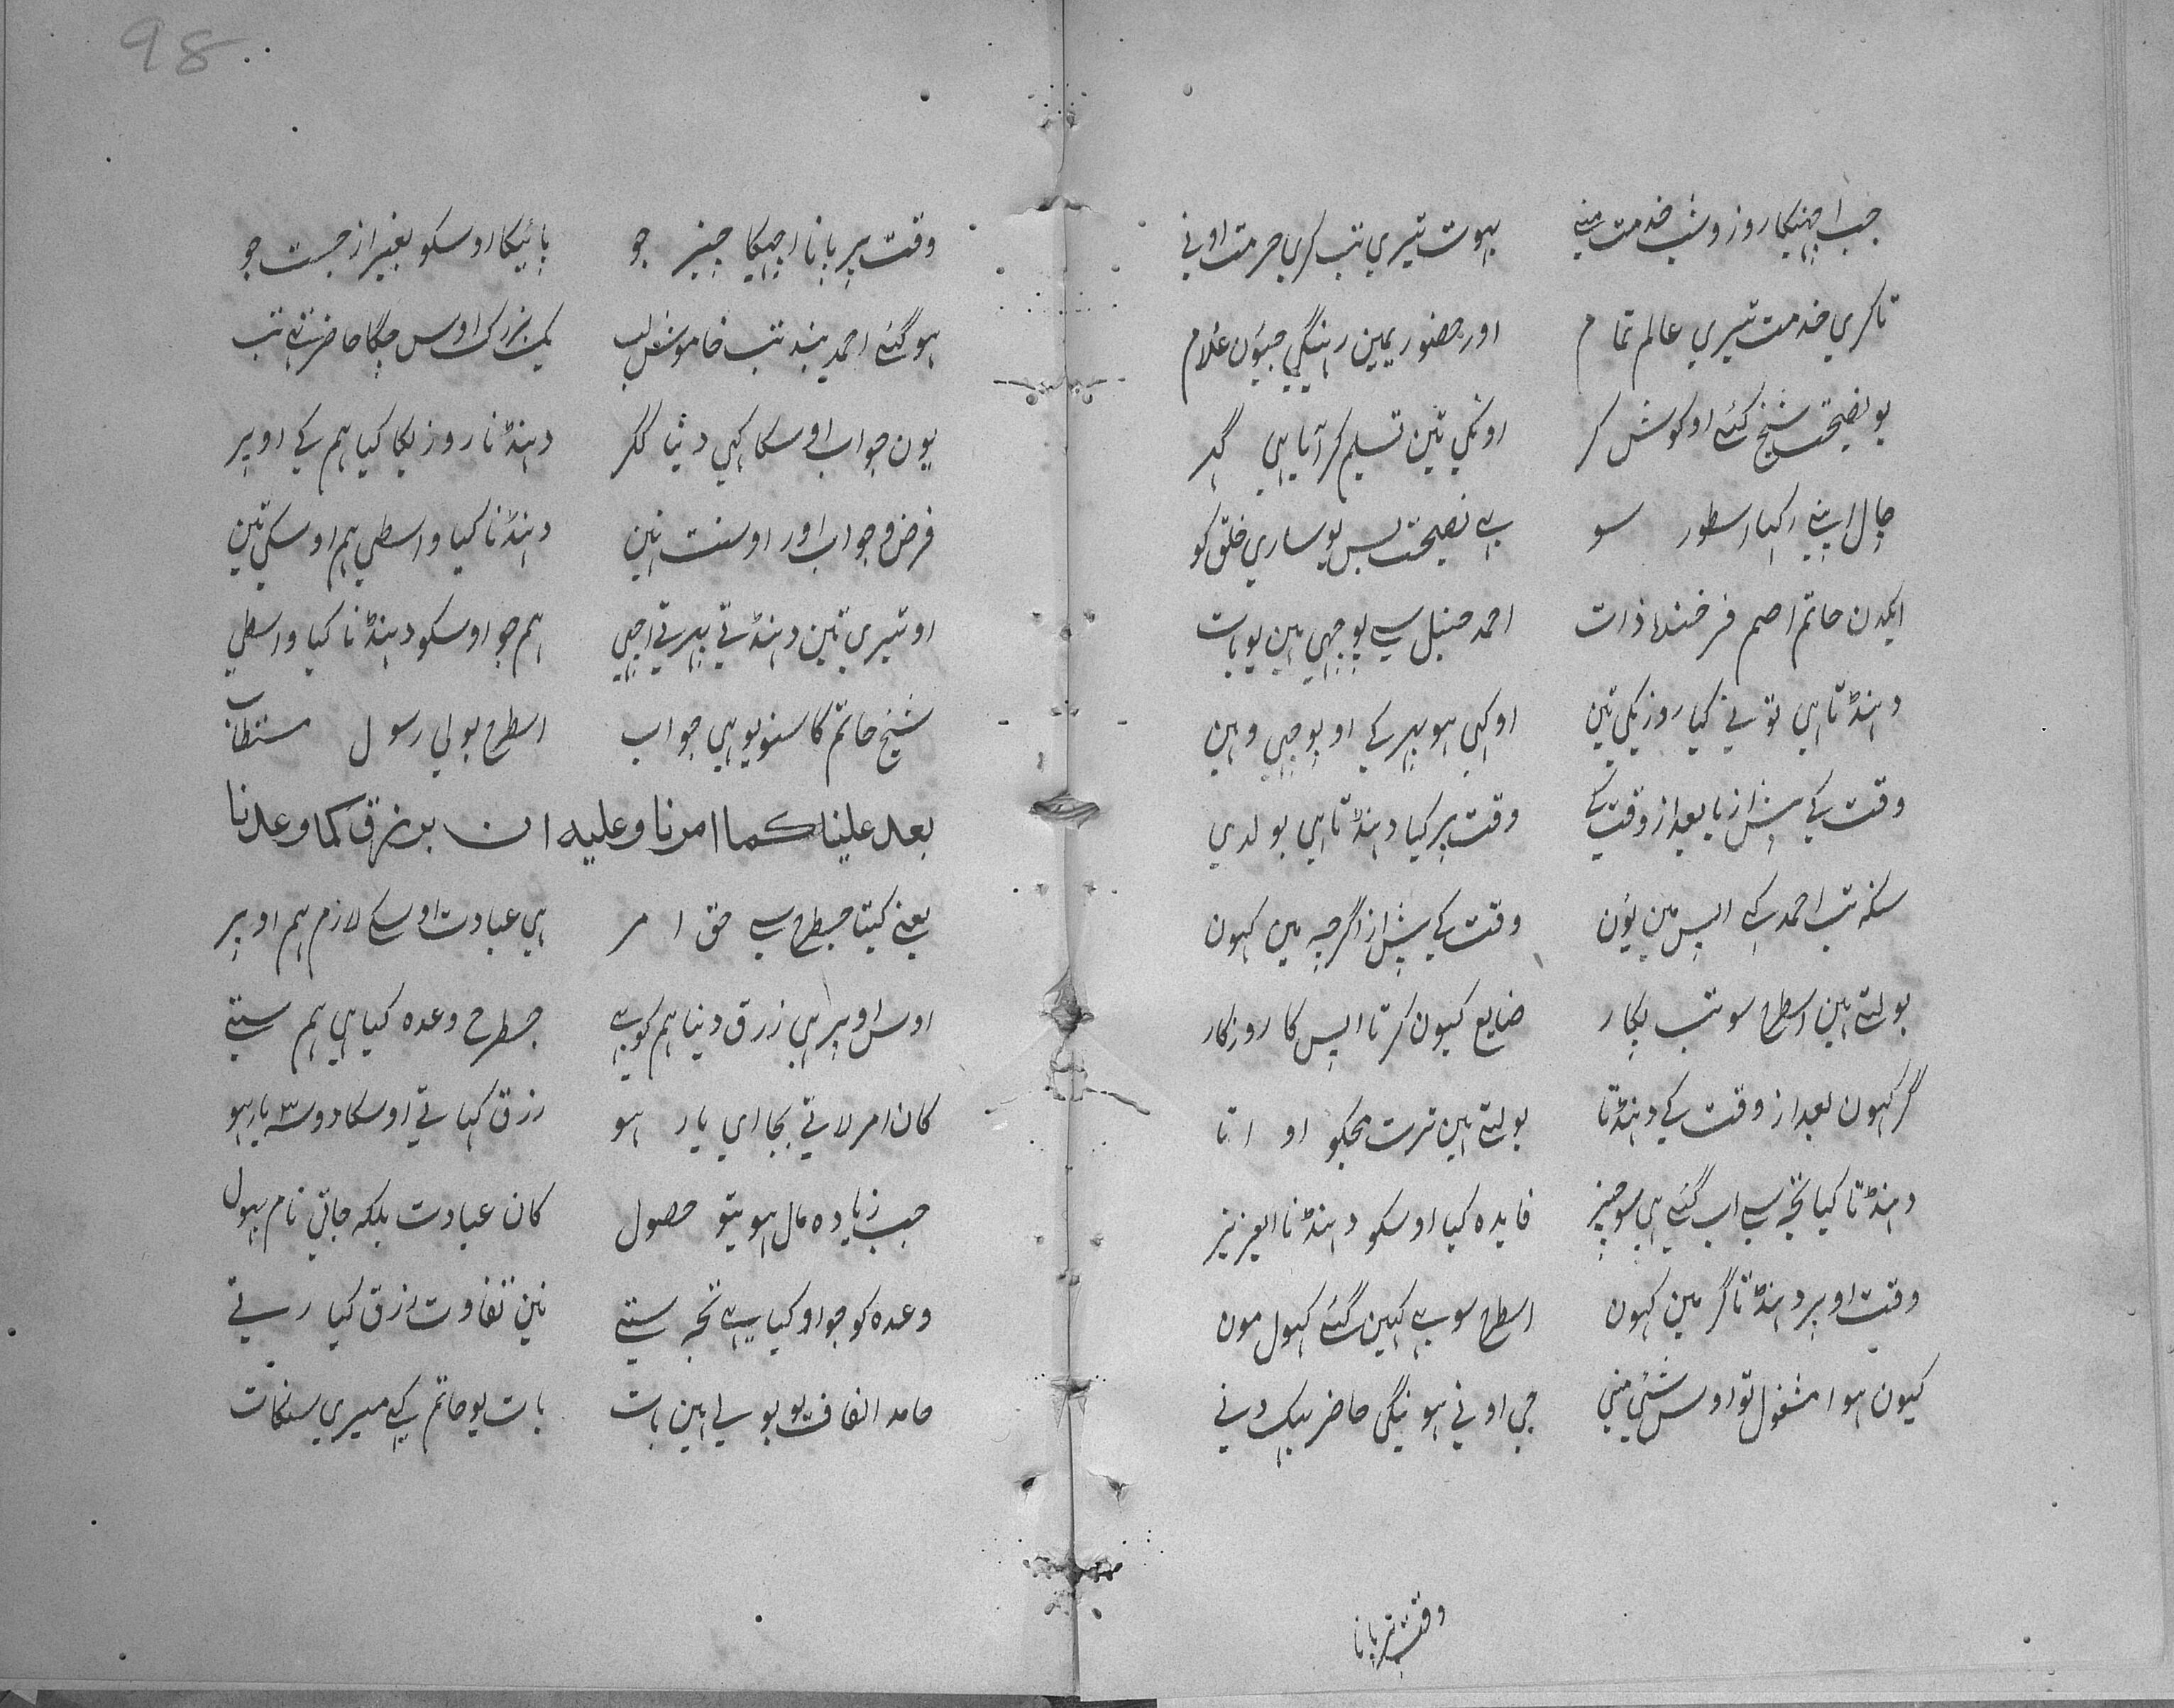 جب اچھیکا روز و شب خدمت منے بہوت تیری تب کری حرمت اونی
تا کری خدمت تیری عالم تمام اور حضور یمین رہینگی جیون غلام
یو نصیحت شیخ کئے او کوش کر اونکی تین تسلیم کر آیا ہی گہر
چال اپنے رکہا اسطور سو ہے نصیحت بس یو ساری خلق کو
ایکدن حاتم اصم فرخندہ ذات احمد حنبل سے پوچہی ہین یو بات
دہنڈتا ہی تو نے کیا روزیکی تین او کہی ہو پہر کے او پوچہی وہین
وقت کے پیش از یا بعد از وقت کے وقت پر کیا دہنڈتا ہی بولدی
سنکہ تب احمد کہے اپس مین یون وقت کے پیش از اگرچہ مین کہون
بولتے ہین اسطرح سو تب پکار ضایع کیون کرتا اپس کا روزکار
گر کہون بعد از وقت کے دہنڈتا بولتے ہین ترت مجکو او اتا
دہنڈتا کیا تجہ سے اب گئے ہی سو چیز فایدہ کیا اوسکو دہنڈنا ایعزیز
وقت اوپر دہنڈتا گر مین کہون اسطرح سو ہے کہین گئے کہول مون
کیون ہوا مشغول تو اوس شئی منی جی اونی ہونیگی حاضر یک دنی
وقت پر پانا
98
وقت پر پانا اچہیکا چیز جو پائیکا اوسکو بغیر از جست جو
ہو گئے احمد بند تب خاموش لب یک بزرک اوس جگا حاضر تہے تب
یون جواب اوسکا کہی دیتا ککر دہنڈنا روزیکا کیا ہم کے اوپر
فرض و جواب اور اوسنت نین دہنڈنا کیا واسطی ہم اوسکی تین
او تیری تین دہنڈتے پہرتے اچہی ہم جو اوسکو دہنڈنا کیا واسطی
شیخ حاتم کا سنو یو ہی جواب اسطرح بولی رسول مستطاب
بعد علینا کما امرنا وعلیه ان یرزق کما وعدنا
یعنے کیتا جسطرح سے حق امر ہی عبادت اوسکے لازم ہم اوپر
اوس اوپر ہی رزق دینا ہم کو ہے جسطرح وعدہ کیا ہی ہم ستے
کان امر لاتے بجا ای یار ہو رزق کہاتے اوسکا دوسہ یار ہو
جب زیادہ مال ہو یتو حصول کان عبادت بلکہ جاتی نام بہول
وعدہ کو جو او کیا ہے تجہ ستے نین تفاوت رزق کیا رستے
حامد الفاف یو بولے ہین بات بات یو حاتم کہے میری سنکات